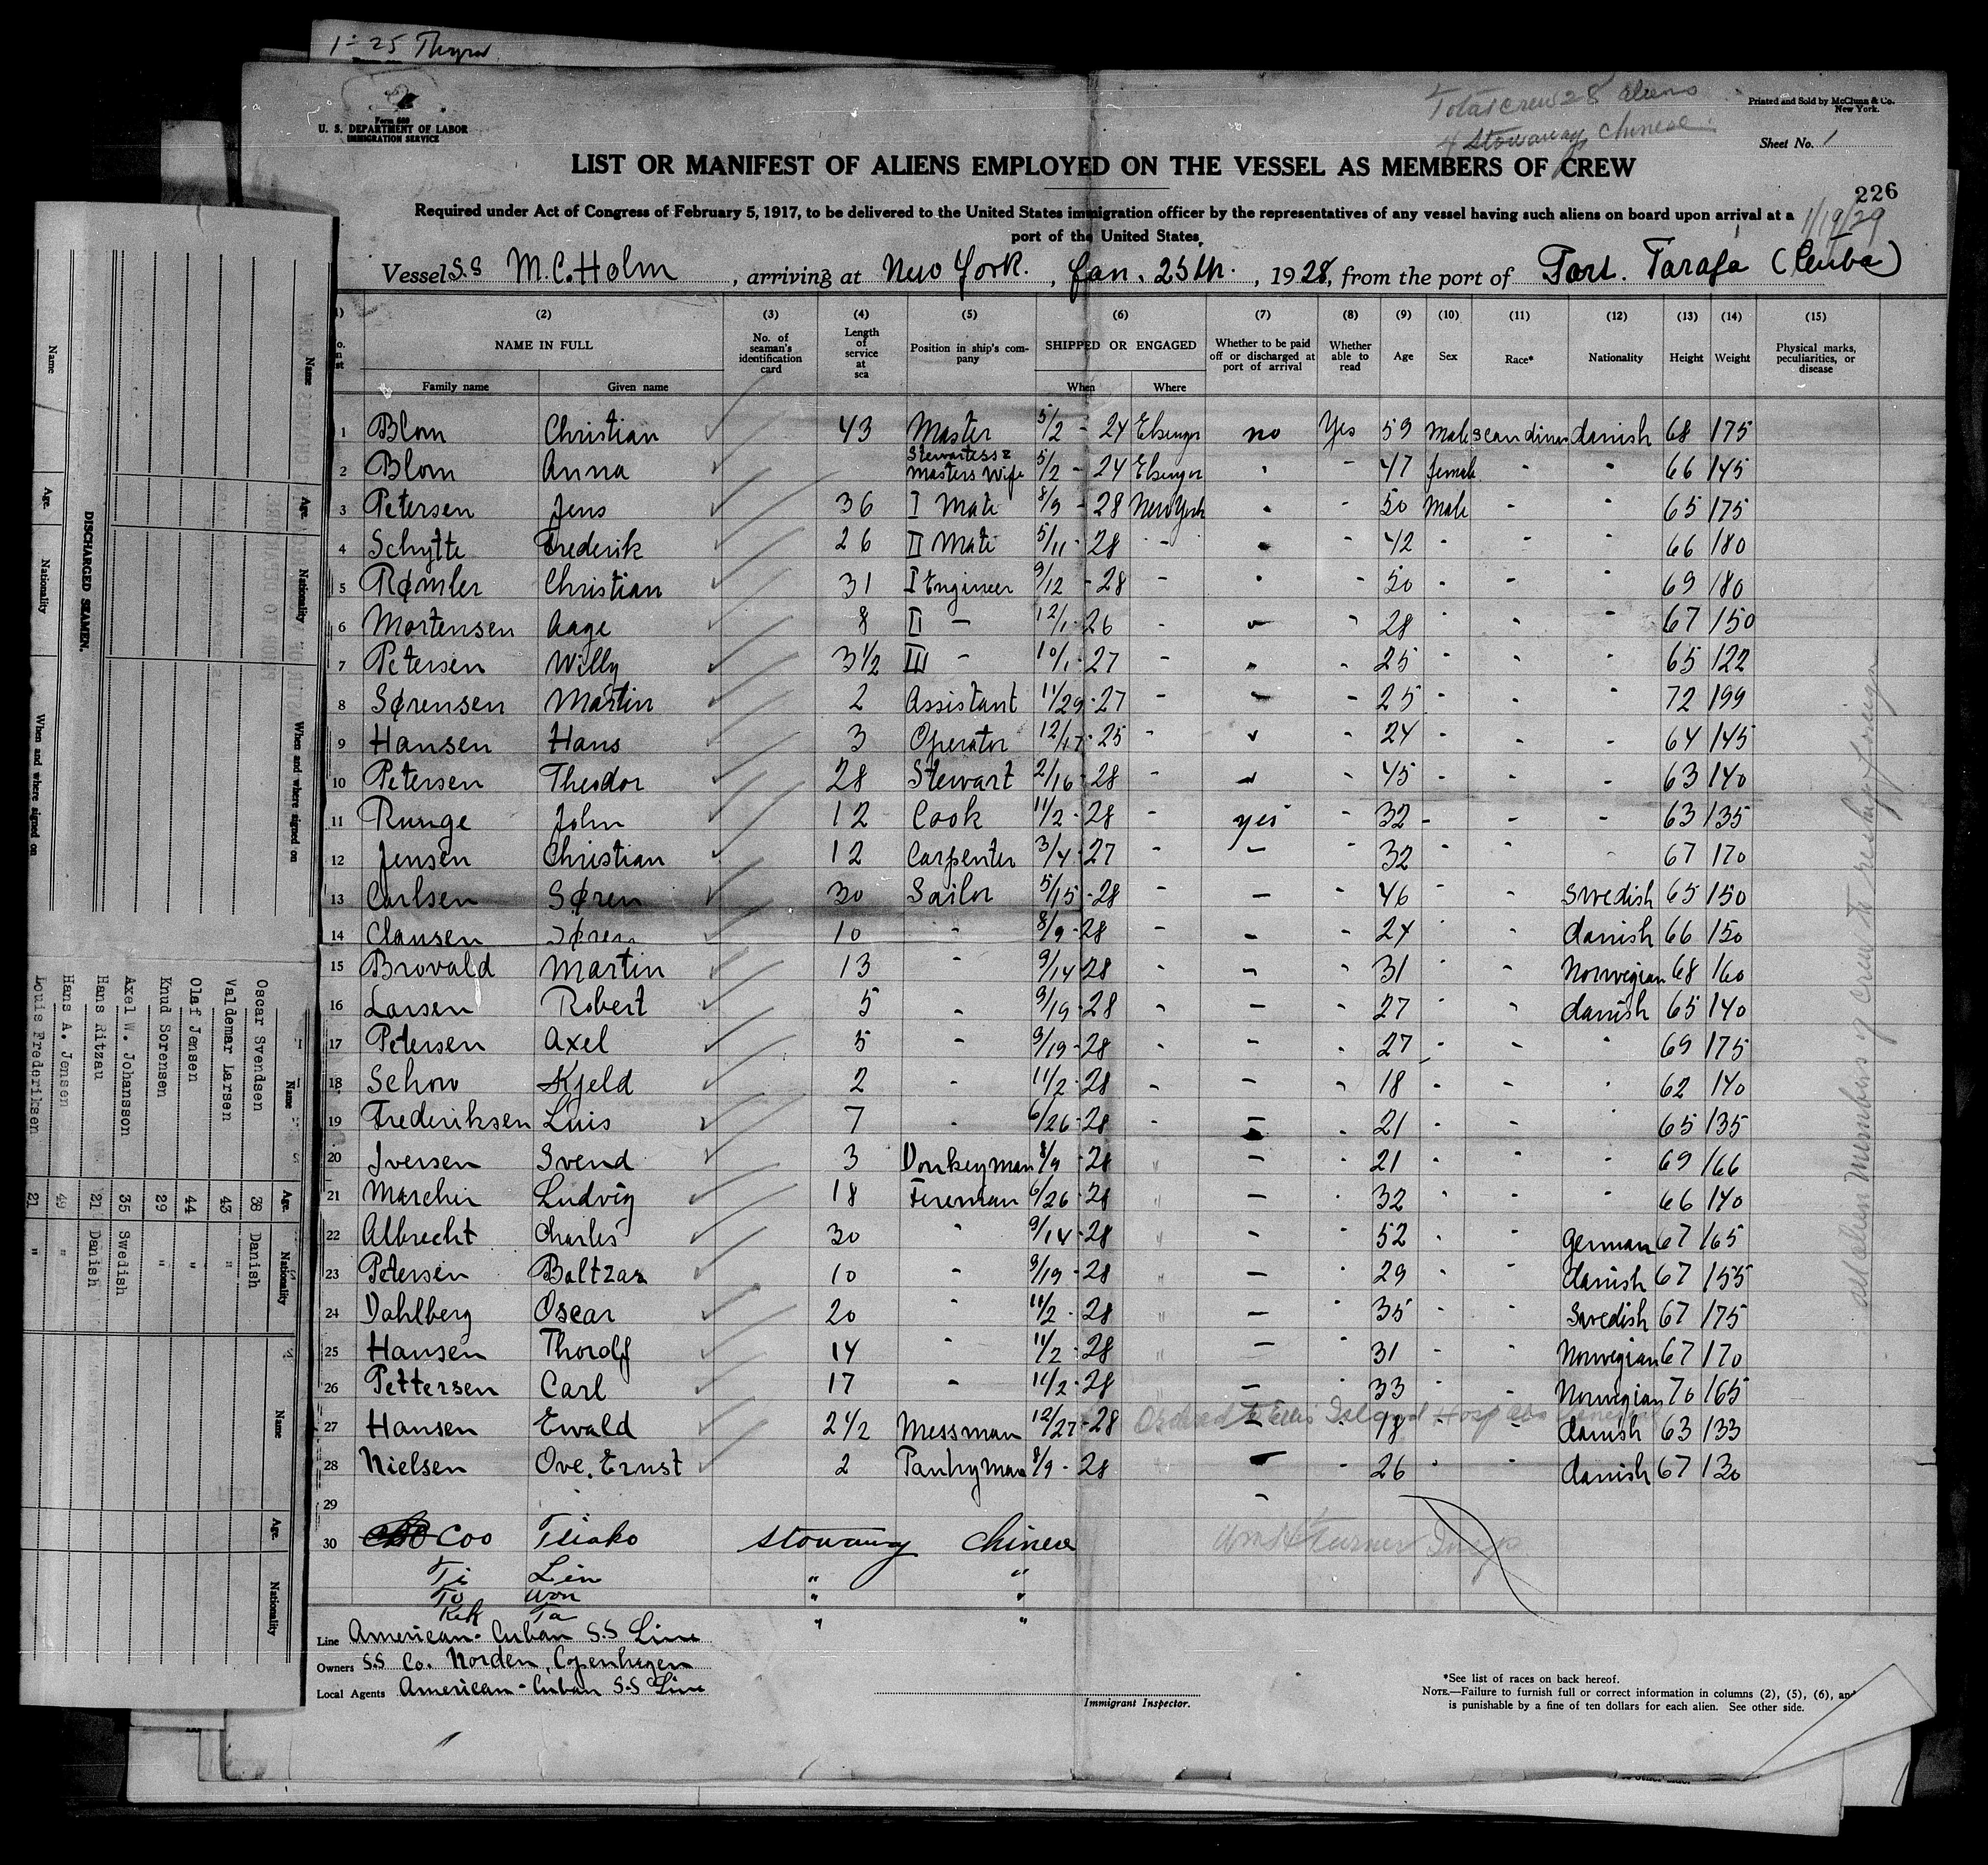 1-25 Thyra
Form 680
U. S. DEPARTMENT OF LABOR
IMMIGRATION SERVICE
Total crew 28 aliens
4 stowaway Chinese
Printed and Sold by McClunn & Co.
New York.
Sheet No. 1
LIST OR MANIFEST OF ALIENS EMPLOYED ON THE VESSEL AS MEMBERS OF CREW
226
Required under Act of Congress of February 5, 1917, to be delivered to the United States immigration officer by the representatives of any vessel having such aliens on board upon arrival at a
port of the United States
1/19/29
Vessel S.S M.C. Holm, arriving at New York., Jan. 25th., 1928, from the port of Port. Tarafa (Cuba)
(2) (3) (4) (5) (6) (7) (8) (9) (10) (11) (12) (13) (14) (15)
NAME IN FULL
Family name Given name
No. of seaman's identification card
Length of service at sea
Position in ship's company
SHIPPED OR ENGAGED
When Where
Whether to be paid off or discharged at port of arrival
Whether able to read
Age
Sex
Race*
Nationality
Height
Weight
Physical marks, peculiarities, or disease
1 Blom Christian 43 Master 5/2 - 24 Elsengor no Yes 59 Male Scandinav danish 68 175
2 Blom Anna Stewartess & Masters Wife 5/2 - 24 Elsengor " - 47 female - " 66 145
3 Petersen Jens 36 I Mate 8/9 - 28 New York " - 50 Male - " 65 175
4 Schytte Frederik 26 II Mate 5/11 - 28 - - - 42 - - - 66 180
5 Rømler Christian 31 I Engineer 9/12 - 28 - - - 50 - - - 69 180
6 Mortensen Aage 8 II - 12/1 - 26 - - - 28 - - - 67 150
7 Petersen Willy 3 1/2 III - 10/1 - 27 - - - 25 - - - 65 122
8 Sørensen Martin 2 Assistant 11/29 - 27 - - - 25 - - - 72 199
9 Hansen Hans 3 Operator 12/17 - 25 - - - 24 - - - 64 145
10 Petersen Theodor 28 Stewart 2/16 - 28 - - - 45 - - - 63 140
11 Runge John 12 Cook 11/2 - 28 - yes - 32 - - - 63 135
12 Jensen Christian 12 Carpenter 3/4 - 27 - - - 32 - - - 67 170
13 Carlsen Søren 30 Sailor 5/15 - 28 - - - 46 - - Swedish 65 150
14 Clausen Søren 10 - 8/9 - 28 - - - 24 - - danish 66 150
15 Brovald Martin 13 - 9/14 28 - - - 31 - - Norwegian 68 160
16 Larsen Robert 5 - 9/19 - 28 - - - 27 - - danish 65 140
17 Petersen Axel 5 - 9/19 - 28 - - - 27 - - - 69 175
18 Schow Kjeld 2 - 11/2 - 28 - - - 18 - - - 62 140
19 Frederiksen Luis 7 - 6/26 - 28 - - - 21 - - - 65 135
20 Iversen Svend 3 Donkeyman 8/9 - 28 " - - 21 - - - 69 166
21 Marcher Ludvig 18 Fireman 6/26 - 28 " - - 32 - - - 66 140
22 Albrecht Charles 30 " 9/14 - 28 " - - 52 - - German 67 165
23 Petersen Baltzar 10 " 9/19 - 28 " - - 29 - - danish 67 155
24 Dahlberg Oscar 20 " 11/2 - 28 " - - 35 - - Swedish 67 175
25 Hansen Thorolf 14 " 11/2 - 28 " - - 31 - - Norwegian 67 170
26 Pettersen Carl 17 " 11/2 - 28 - - 33 - - Norwegian 70 165
27 Hansen Ewald 2 1/2 Messman 12/27 - 28 Ordered to Ellis Island Hosp - 18 - - danish 63 133
28 Nielsen Ove. Ernst 2 Pantryman 8/9 - 28 - - 26 - - danish 67 130
29
30 Coo Tsiako stowaway Chinese
Ti Lin " "
To Won " "
Kek Ta " "
all alien members of crew to reship foreign
Line American-Cuban S.S Line
Owners S.S Co. Norden, Copenhagen
Local Agents American-Cuban S.S Line
Immigrant Inspector.
*See list of races on back hereof.
NOTE.—Failure to furnish full or correct information in columns (2), (5), (6), and
is punishable by a fine of ten dollars for each alien. See other side.
DISCHARGED SEAMEN.
Name Age. Nationality When and where signed on
Name Age. Nationality When and where signed on
Name Age. Nationality
Oscar Svendsen 38 Danish
Valdemar Larsen 43 "
Olaf Jensen 44 "
Knud Sorensen 29 "
Axel W. Johansson 35 Swedish
Hans Ritzau 21 Danish
Hans A. Jensen 49 "
Louis Frederiksen 21 "
Name Age. Nationality